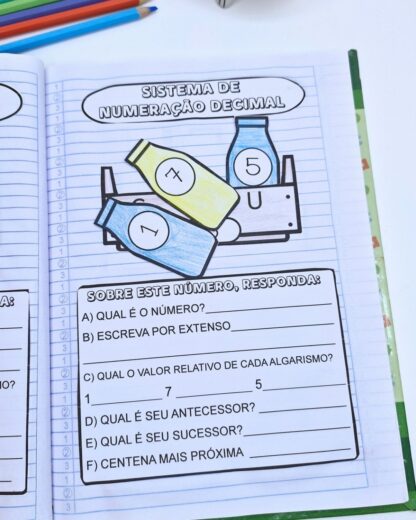 SISTEMA DE
NUMERAÇÃO DECIMAL
7
5
1
U
SOBRE ESTE NÚMERO, RESPONDA:
A) QUAL É O NÚMERO?
B) ESCREVA POR EXTENSO
C) QUAL O VALOR RELATIVO DE CADA ALGARISMO?
1 7 5
D) QUAL É SEU ANTECESSOR?
E) QUAL É SEU SUCESSOR?
F) CENTENA MAIS PRÓXIMA
A:
IO?